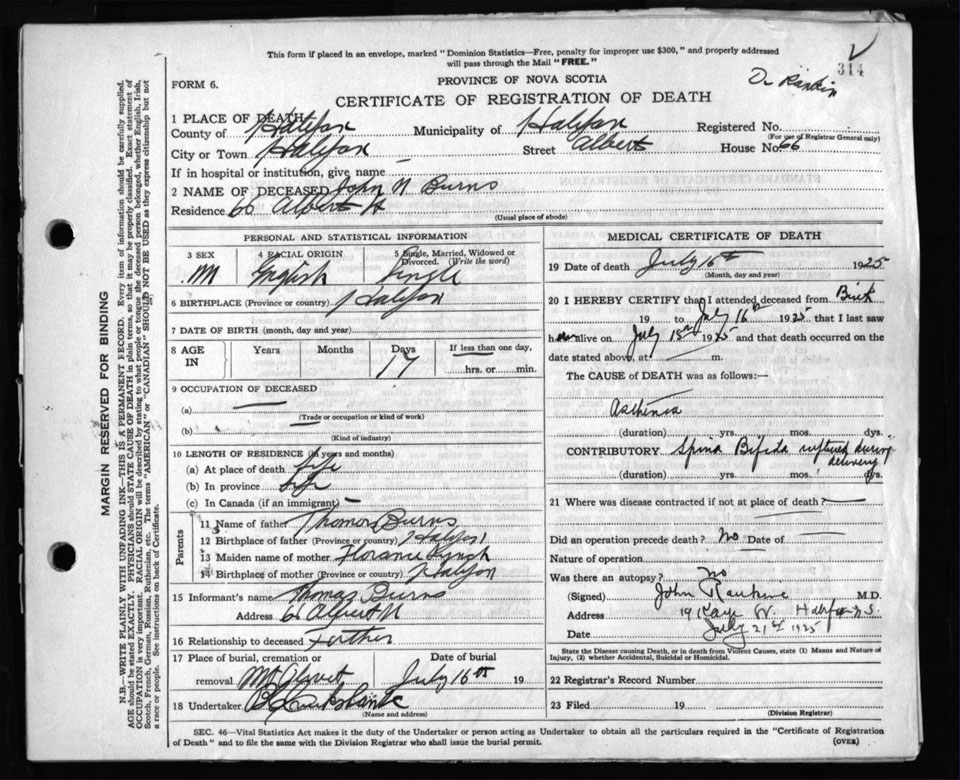 This form if placed in an envelope, marked "Dominion Statistics—Free, penalty for improper use $300," and properly addressed
will pass through the Mail "FREE."
314
Dr Rankin
FORM 6.
PROVINCE OF NOVA SCOTIA
CERTIFICATE OF REGISTRATION OF DEATH
1 PLACE OF DEATH
County of Halifax Municipality of Halifax Registered No.
(For use of Registrar General only)
City or Town Halifax Street Albert House No. 66
If in hospital or institution, give name —
2 NAME OF DECEASED John N Burns
Residence 66 Albert St
(Usual place of abode)
PERSONAL AND STATISTICAL INFORMATION
3 SEX 4 RACIAL ORIGIN 5 Single, Married, Widowed or Divorced. (Write the word)
M English Single
6 BIRTHPLACE (Province or country) Halifax
7 DATE OF BIRTH (month, day and year)
8 AGE IN Years Months Days If less than one day,
17 hrs. or min.
9 OCCUPATION OF DECEASED
(a) —
(Trade or occupation or kind of work)
(b) —
(Kind of industry)
10 LENGTH OF RESIDENCE (in years and months)
(a) At place of death life
(b) In province life
(c) In Canada (if an immigrant) —
Parents
11 Name of father Thomas Burns
12 Birthplace of father (Province or country) Halifax
13 Maiden name of mother Florance Lynch
14 Birthplace of mother (Province or country) Halifax
15 Informant's name Thomas Burns
Address 66 Albert
16 Relationship to deceased Farther
17 Place of burial, cremation or removal Date of burial
Mt Olivet July 16th 19
18 Undertaker
(Name and address)
MEDICAL CERTIFICATE OF DEATH
19 Date of death July 16th 1925
(Month, day and year)
20 I HEREBY CERTIFY that I attended deceased from Birth
19 to July 16th 1925 that I last saw
h alive on July 15th 1925 and that death occurred on the
date stated above, at — m.
The CAUSE of DEATH was as follows:—
Asthenia
(duration) yrs. mos. dys.
CONTRIBUTORY Spina Bifida ruptured during delivery
(duration) yrs. mos. dys.
21 Where was disease contracted if not at place of death? —
Did an operation precede death? No Date of —
Nature of operation
Was there an autopsy? no
(Signed) John Rankine M.D.
Address 19 Kaye St. Halifax N.S.
Date July 21st 1925
State the Disease causing Death, or in death from Violent Causes, state (1) Means and Nature of
Injury, (2) whether Accidental, Suicidal or Homicidal.
22 Registrar's Record Number
23 Filed 19
(Division Registrar)
SEC. 46—Vital Statistics Act makes it the duty of the Undertaker or person acting as Undertaker to obtain all the particulars required in the "Certificate of Registration
of Death" and to file the same with the Division Registrar who shall issue the burial permit. (OVER)
MARGIN RESERVED FOR BINDING
N.B.—WRITE PLAINLY WITH UNFADING INK—THIS IS A PERMANENT RECORD. Every item of information should be carefully supplied.
AGE should be stated EXACTLY. PHYSICIANS should STATE CAUSE OF DEATH in plain terms, so that it may be properly classified. Exact statement of
OCCUPATION is very important. RACIAL ORIGIN will be described by stating to what people or tongue the deceased person belonged, whether English, Irish,
Scotch, French, German, Russian, Ruthenian, etc. The terms "AMERICAN" or "CANADIAN" SHOULD NOT BE USED as they express citizenship but not
a race or people. See instructions on back of Certificate.